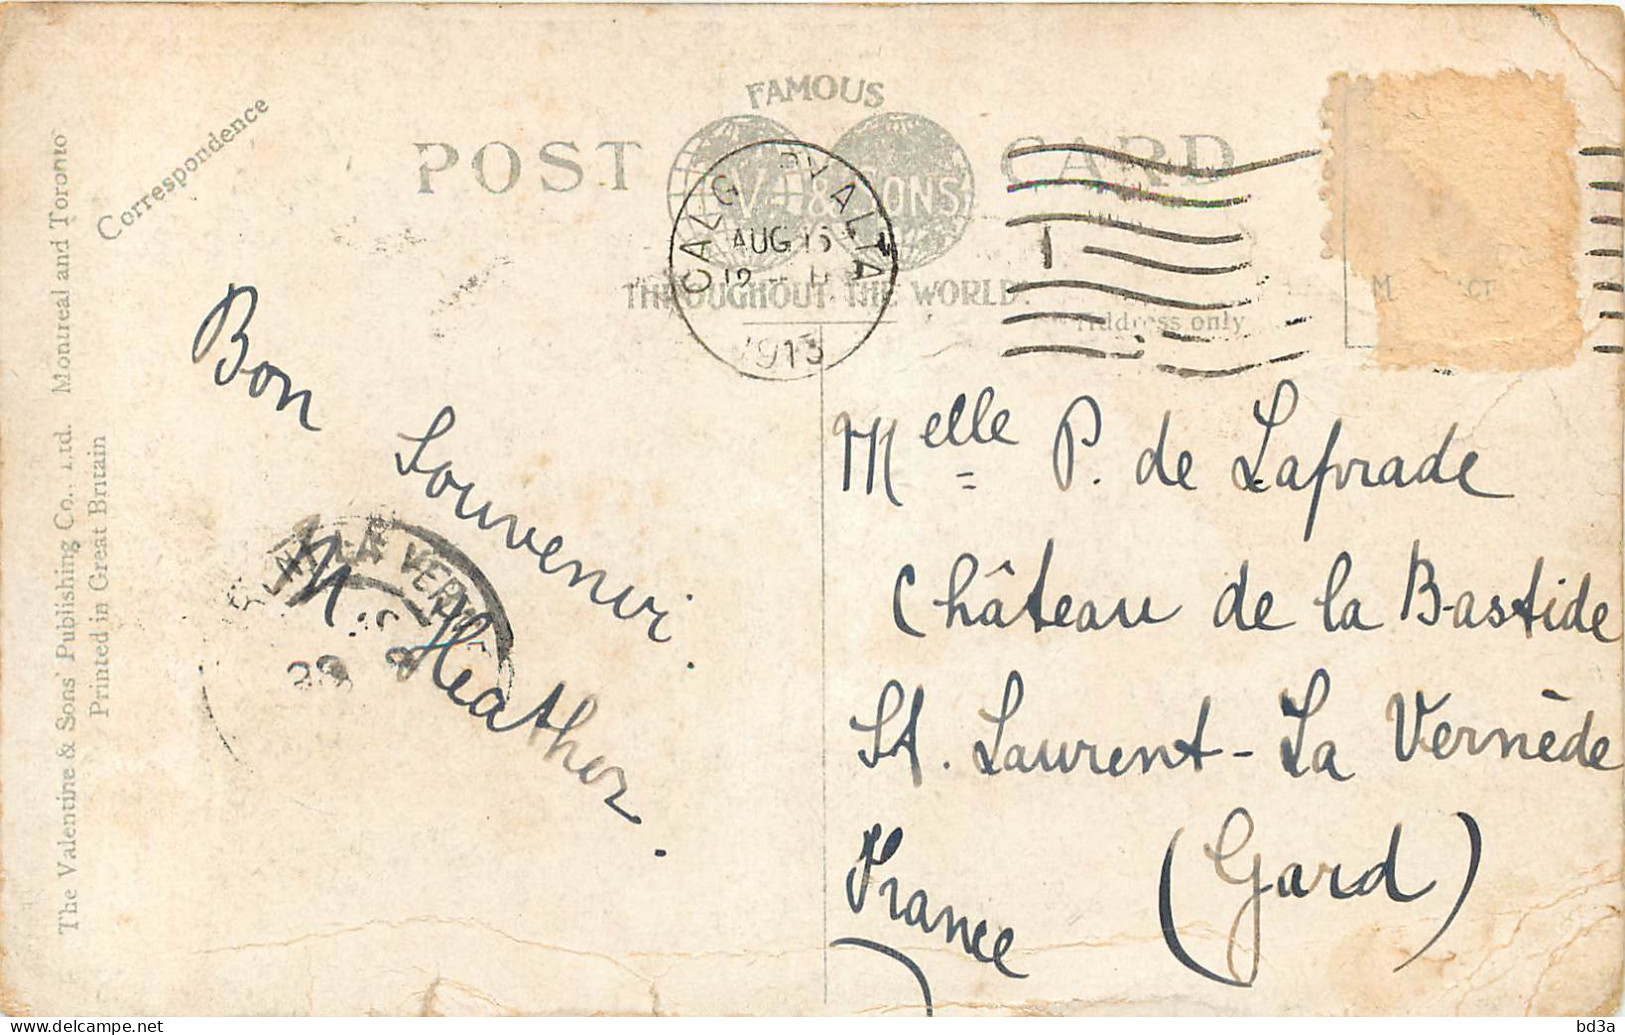 The Valentine & Sons' Publishing Co., Ltd. Montreal and Toronto
Printed in Great Britain
Correspondence
FAMOUS
POST CARD
V & SONS
THROUGHOUT THE WORLD.
Address only
CALG Y ALTA
AUG 15
12
1913
1
Bon
Souvenir.
M. Heather.
VERN
Melle P. de Laprade
Château de la Bastide
St. Laurent-La Vernède
France (Gard)
bd3a